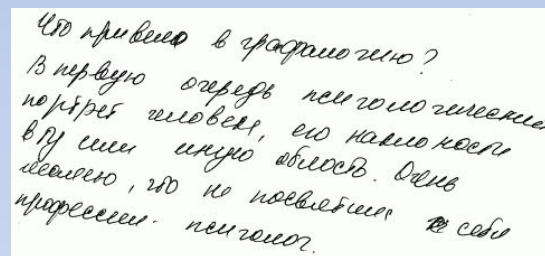 Что привело в графологию?
В первую очередь психологический
портрет человека, его наклоности
в ту или иную область. Очень
жалею, что не посвятила себя
профессии - психолог.